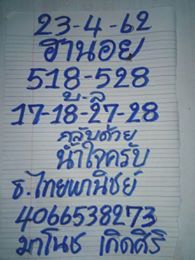 23-4-62
ฮานอย
518-528
บ-ล
17-18-27-28
กลับด้วย
น้ำใจครับ
ธ.ไทยพานิชย์
4066538273
มาโนช เกิดศิริ